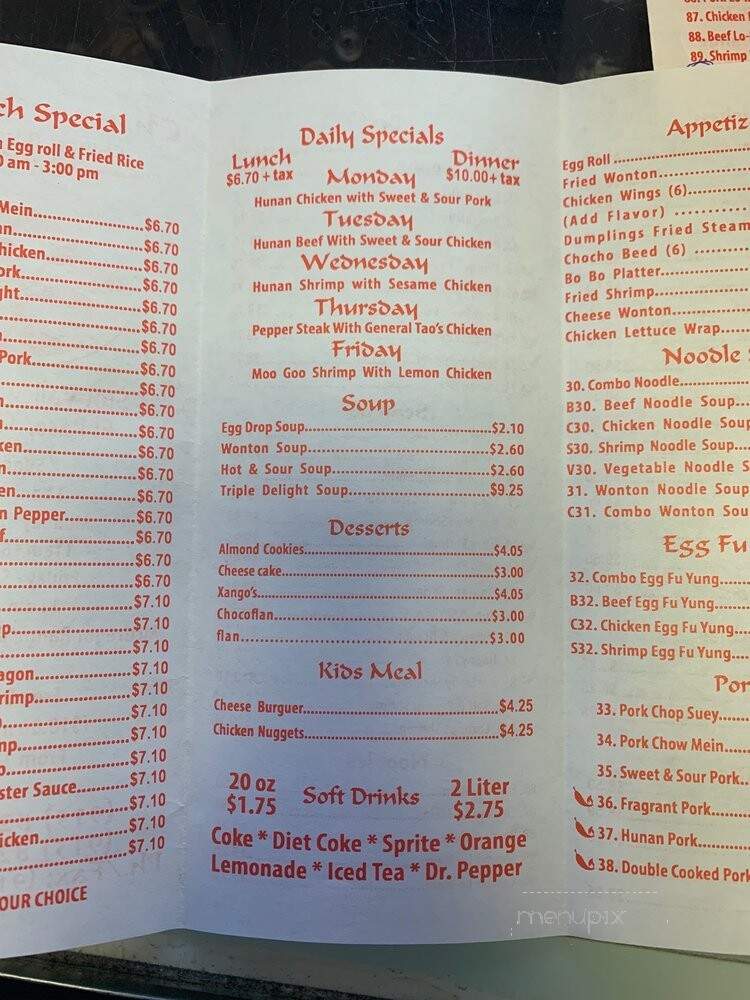 87. Chicken
88. Beef Lo-
89. Shrimp
ch Special
Egg roll & Fried Rice
am - 3:00 pm
Mein.....................$6.70
.....................$6.70
hicken.....................$6.70
ork.....................$6.70
ght.....................$6.70
.....................$6.70
.....................$6.70
Pork.....................$6.70
.....................$6.70
.....................$6.70
.....................$6.70
ken.....................$6.70
.....................$6.70
en.....................$6.70
n Pepper.....................$6.70
f.....................$6.70
.....................$6.70
.....................$6.70
.....................$7.10
p.....................$7.10
.....................$7.10
agon.....................$7.10
rimp.....................$7.10
.....................$7.10
mp.....................$7.10
.....................$7.10
ster Sauce.....................$7.10
.....................$7.10
icken.....................$7.10
.....................$7.10
OUR CHOICE
Daily Specials
Lunch Dinner
$6.70 + tax Monday $10.00+ tax
Hunan Chicken with Sweet & Sour Pork
Tuesday
Hunan Beef With Sweet & Sour Chicken
Wednesday
Hunan Shrimp with Sesame Chicken
Thursday
Pepper Steak With General Tao's Chicken
Friday
Moo Goo Shrimp With Lemon Chicken
Soup
Egg Drop Soup.....................$2.10
Wonton Soup.....................$2.60
Hot & Sour Soup.....................$2.60
Triple Delight Soup.....................$9.25
Desserts
Almond Cookies.....................$4.05
Cheese cake.....................$3.00
Xango's.....................$4.05
Chocoflan.....................$3.00
flan.....................$3.00
Kids Meal
Cheese Burguer.....................$4.25
Chicken Nuggets.....................$4.25
20 oz Soft Drinks 2 Liter
$1.75 $2.75
Coke * Diet Coke * Sprite * Orange
Lemonade * Iced Tea * Dr. Pepper
Appetiz
Egg Roll .....................
Fried Wonton.....................
Chicken Wings (6).....................
(Add Flavor) .....................
Dumplings Fried Steam
Chocho Beed (6) .....................
Bo Bo Platter.....................
Fried Shrimp.....................
Cheese Wonton.....................
Chicken Lettuce Wrap.....................
Noodle
30. Combo Noodle.....................
B30. Beef Noodle Soup...
C30. Chicken Noodle Soup
S30. Shrimp Noodle Soup...
V30. Vegetable Noodle S
31. Wonton Noodle Soup
C31. Combo Wonton Sou
Egg Fu
32. Combo Egg Fu Yung.....
B32. Beef Egg Fu Yung.....
C32. Chicken Egg Fu Yung...
S32. Shrimp Egg Fu Yung....
Por
33. Pork Chop Suey.........
34. Pork Chow Mein.......
35. Sweet & Sour Pork...
36. Fragrant Pork.........
37. Hunan Pork...........
38. Double Cooked Pork
menupix